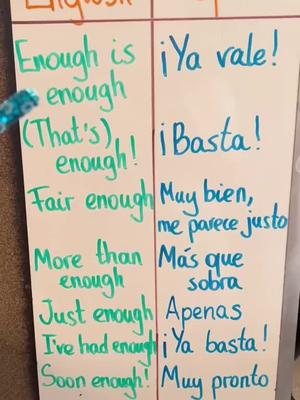 English
Enough is
enough
¡Ya vale!
(That's)
enough!
¡Basta!
Fair enough
Muy bien,
me parece justo
More than
enough
Más que
sobra
Just enough
Apenas
I've had enough
¡Ya basta!
Soon enough!
Muy pronto